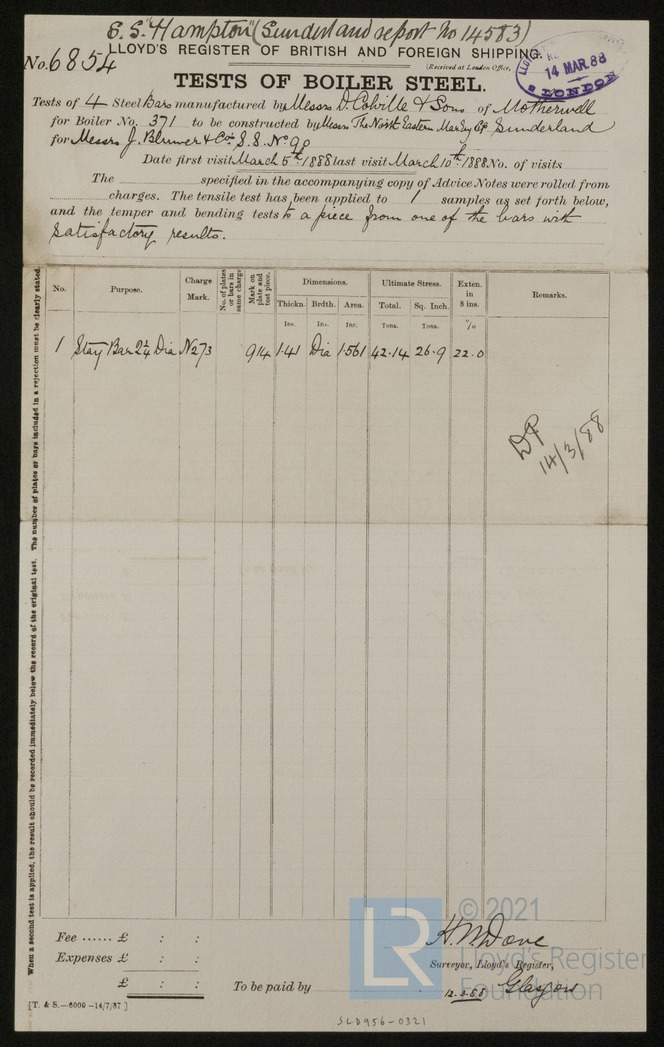 S.S. "Hampton" (Sunderland report No 14583)
LLOYD'S REGISTER OF BRITISH AND FOREIGN SHIPPING.
No. 6854
(Received at London Office,
14 MAR. 88
LONDON
TESTS OF BOILER STEEL.
Tests of 4 Steel Bars manufactured by Messrs D. Colville & Sons of Motherwell
for Boiler No. 371 to be constructed by Messrs The North Eastern Mar Eng Co Sunderland
for Messrs J. Blumer & Co's S.S. No 90
Date first visit March 5th 1888 last visit March 10th 1888. No. of visits
The specified in the accompanying copy of Advice Notes were rolled from
charges. The tensile test has been applied to 1 samples as set forth below,
and the temper and bending tests to a piece from one of the bars with
satisfactory results.
No. Purpose. Charge Mark. No. of plates or bars in same charge Mark on plate and test piece. Dimensions. Ultimate Stress. Exten. in 8 ins. Remarks.
Thickn. Brdth. Area. Total. Sq. Inch.
Ins. Ins. Ins. Tons. Tons. %
1 Stay Bar 2¼ Dia N273 914 1.41 Dia 1.561 42.14 26.9 22.0
DP
14/3/88
When a second test is applied, the result should be recorded immediately below the record of the original test. The number of plates or bars included in a rejection must be clearly stated.
Fee ...... £ : :
Expenses £ : :
£ : :
To be paid by
Surveyor, Lloyd's Register,
12.3.88 Glasgow
[T. & S.—6000—14/7/87]
LR © 2021
Lloyd's Register
Foundation
SLD956-0321